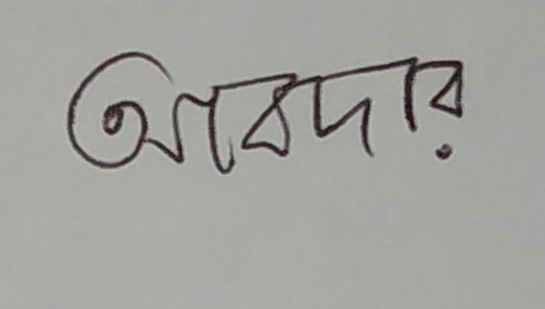 আবদার